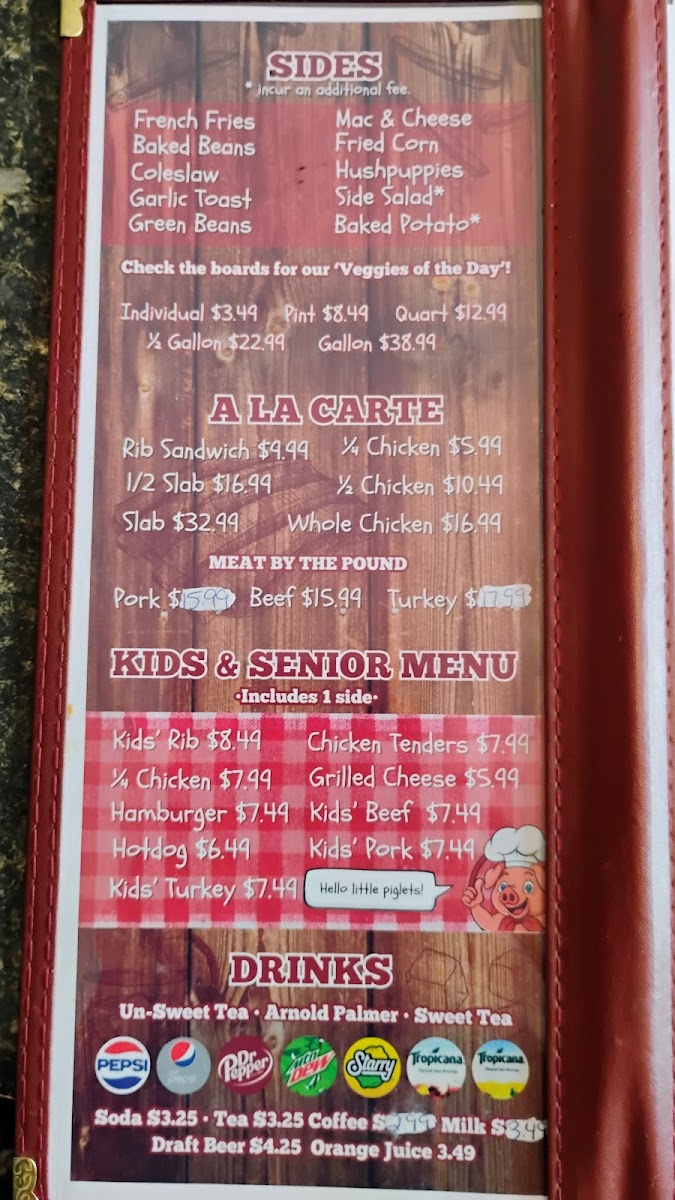 SIDES
* incur an additional fee.
French Fries Mac & Cheese
Baked Beans Fried Corn
Coleslaw Hushpuppies
Garlic Toast Side Salad*
Green Beans Baked Potato*
Check the boards for our 'Veggies of the Day'!
Individual $3.49 Pint $8.49 Quart $12.99
½ Gallon $22.99 Gallon $38.99
A LA CARTE
Rib Sandwich $9.99 ¼ Chicken $5.99
1/2 Slab $16.99 ½ Chicken $10.49
Slab $32.99 Whole Chicken $16.99
MEAT BY THE POUND
Pork $15.99 Beef $15.99 Turkey $17.99
KIDS & SENIOR MENU
·Includes 1 side·
Kids' Rib $8.49 Chicken Tenders $7.99
¼ Chicken $7.99 Grilled Cheese $5.99
Hamburger $7.49 Kids' Beef $7.49
Hotdog $6.49 Kids' Pork $7.49
Kids' Turkey $7.49 Hello little piglets!
DRINKS
Un-Sweet Tea · Arnold Palmer · Sweet Tea
PEPSI Dr Pepper Mtn Dew Starry Tropicana Tropicana
Soda $3.25 · Tea $3.25 Coffee $2.99 Milk $3.49
Draft Beer $4.25 Orange Juice 3.49